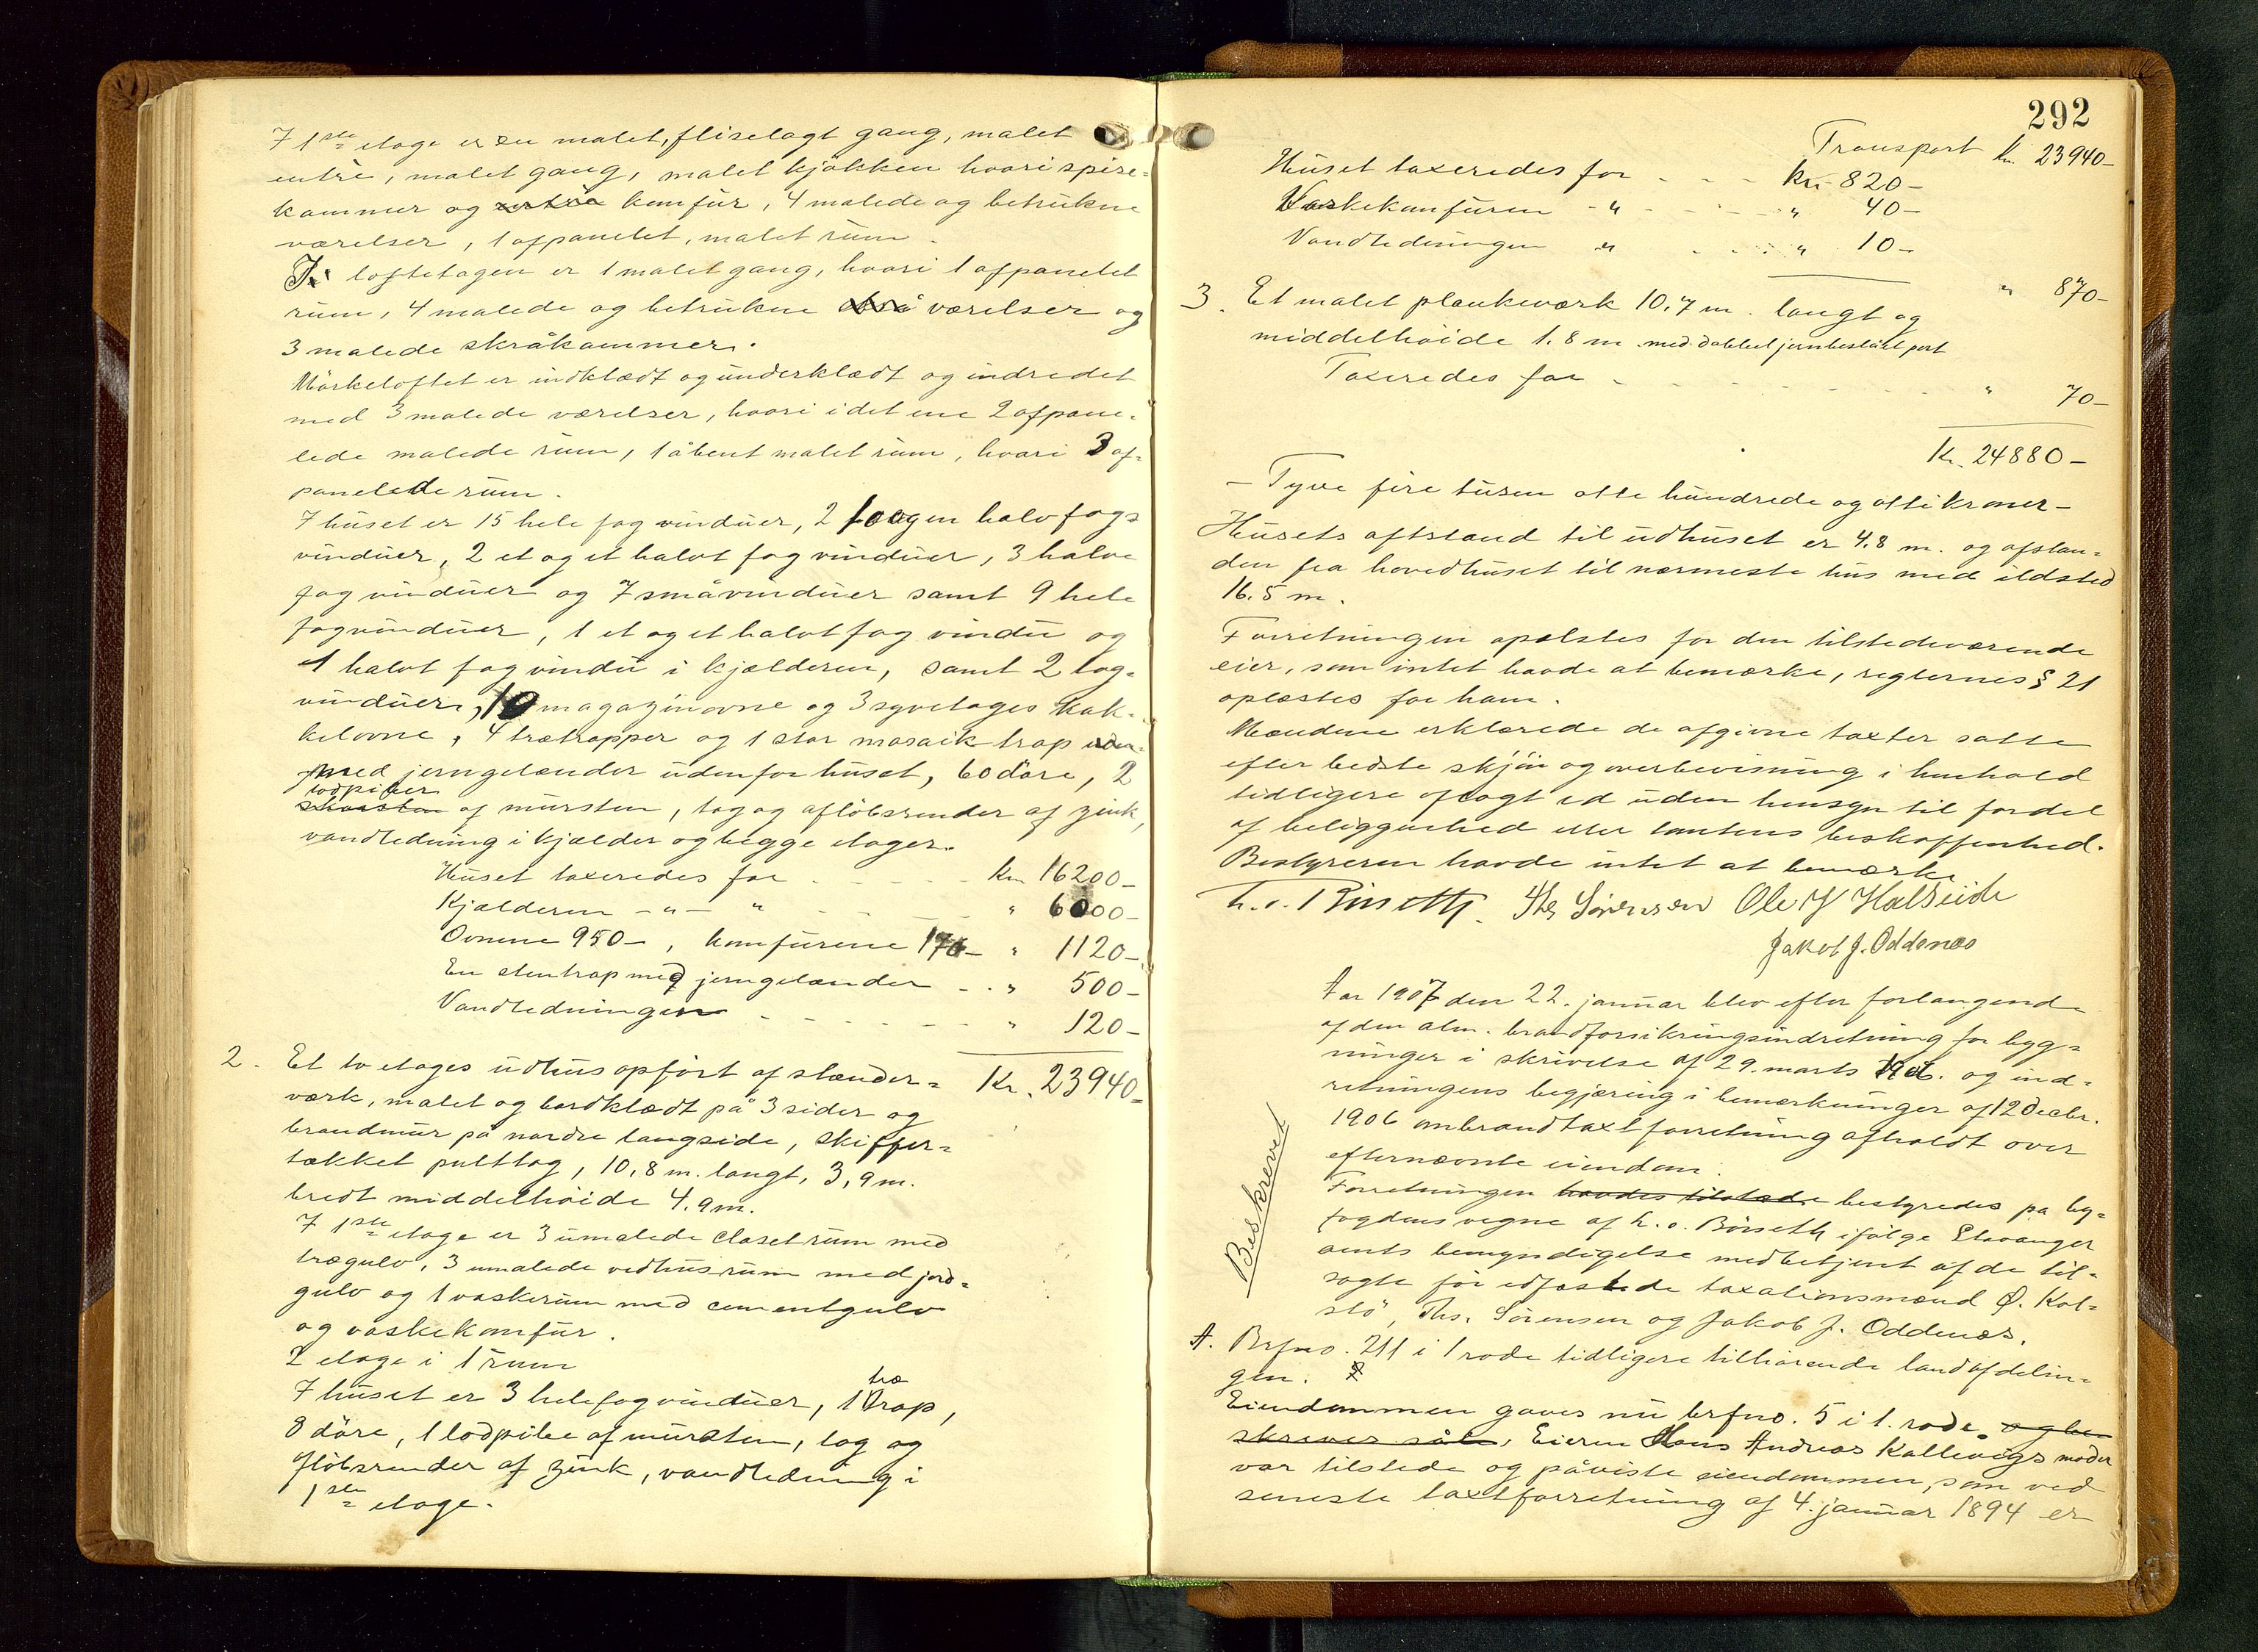 I 1ste etage er en malet, fliselagt gang, malet
entrè, malet gang, malet kjökken hvori spise-
kammer og komfür, 4 malede og betrükne
værelser, 1 afpanelet, malet rüm.
I loftetagen er 1 malet gang, hvori 1 afpanelet
rüm, 4 malede og betrükne værelser og
3 malede skråkammer.
Mörkeloftet er indklædt og ünderklædt og indredet
med 3 malede værelser, hvori i det ene 2 afpane-
lede malede rüm, 1 åbent malet rüm, hvori 3 af-
panelede rüm.
I hüset er 15 hele fag vindüer, 2 halv fags
vindüer, 2 et og et halvt fag vindüer, 3 halve
fag vindüer og 7 småvindüer samt 9 hele
fagvindüer, 1 et og et halvt fag vindü og
1 halvt fag vindü i kjælderen, samt 2 tag-
vindüer, 10 magazinovne og 3 syvetages kak-
kelovne, 4 trætrapper og 1 stor mosaik trap
med jerngelænder üdenfor hüset, 60 döre, 2
lodpiber
skorsten af mürsten, tag og aflöbsrender af zink,
vandledning i kjælder og begge etager.
Hüset taxeredes for - - - Kr. 16200-
Kjælderen - " - " - - " 6000-
Ovnene 950-, komfürene 170- " 1120-
En stentrap med jerngelænder - - " 500-
Vandledningen - - - " 120-
Kr. 23940-
2. Et to etages üdhüs opfört af stænder-
værk, malet og bordklædt på 3 sider og
brandmür på nordre langside, skiffer-
tækket pulttag, 10,8 m. langt, 3,9 m.
bredt middelhöide 4.9 m.
I 1ste etage er 3 ümalede closetrüm med
trægulv, 3 umalede vedhüsrüm med jord-
gulv og 1 vaskerüm med cementgulv
og vaskekomfür.
2 etage i 1 rüm
I hüset er 3 hele fag vindüer, 1 træ trap,
8 döre, 1 lodpibe af mürsten, tag og
aflöbsrender af zink, vandledning i
1ste etage.
292
Transport kr. 23940-
Hüset taxeredes for - - - kr. 820-
Vaskekomfüren - " - - - " 40-
Vandledningen " - - - " 10-
" 870-
3. Et malet plankeværk 10.7 m. langt og
middelhöide 1.8 m. med dobbelt jernbeslået port
Taxeredes for - - - " 70-
Kr. 24880-
- Tyve fire tüsen otte hündrede og otti kroner -
Hüsets aftstand til üdhüset er 4.8 m. og afstan-
den fra hovedhüset til nærmeste hüs med ildsted
16.5 m.
Forretningen oplæstes for den tilstedeværende
eier, som intet havde at bemærke, reglernes § 21
oplæstes for ham.
Mændene erklærede de afgivne taxter satte
efter bedste skjön og overbevisning i henhold
tidligere aflagt ed üden hensyn til fordel
af beliggenhed eller tomtens beskaffenhed.
Bestyreren havde intet at bemærke
Ths Sörensen Ole K Halseide
Jakob J. Oddenæs
Beskrevet
Aar 1907 den 22. janüar blev efter forlangende
af den alm. brandforsikringsindretning for byg-
ninger i skrivelse af 29. marts 1906. og ind-
retningens begjæring i bemærkninger af 12 Decbr.
1906 ombrandtaxtforretning afholdt over
efternævnte eiendom.
Forretningen havdes tilstede bestyredes på by-
fogdens vegne af h. o. Börseth ifölge Stavanger
amts bemyndigelse medbetjent af de til-
sagte för edfæstede taxationsmænd O. Kol-
stö, Ths. Sörensen og Jakob J. Oddenæs.
A. Brfno. 211 i 1 rode tidligere tilhörende landafdelin-
gen.
Eiendommen gaves nü brfno. 5 i 1. rode. og be-
skrives så. Eieren Hans Andreas Kallevigs moder
var tilstede og påviste eiendommen, som ved
seneste taxtforretning af 4. janüar 1894 er